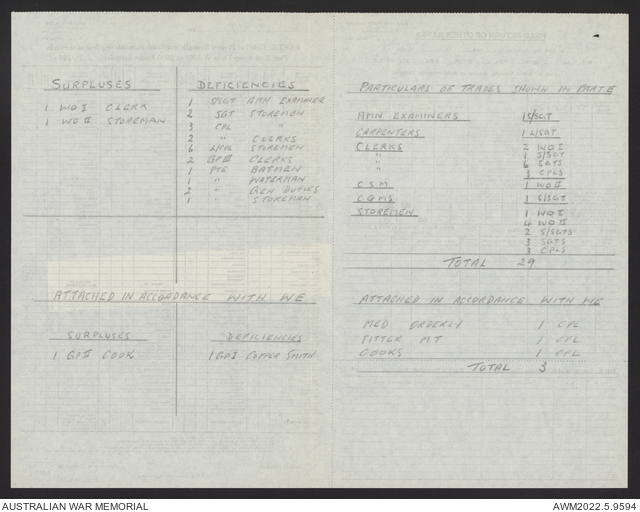 SURPLUSES
1 WO I CLERK
1 WO II STOREMAN
DEFICIENCIES
1 S/SGT AMN EXAMINER
2 SGT STOREMEN
3 CPL "
2 " CLERKS
6 L/CPL STOREMEN
2 GP III CLERKS
1 PTE BATMEN
1 " WATERMAN
2 " GEN DUTIES
1 " STOREMAN
ATTACHED IN ACCORDANCE WITH WE
SURPLUSES
1 GP II COOK
DEFICIENCIES
1 GP I COPPER SMITH
PARTICULARS OF TRADES SHOWN IN PART E
AMN EXAMINERS 1 S/SGT
CARPENTERS 1 L/SGT
CLERKS 2 WO I
" 1 S/SGT
" 6 SGTS
3 CPLS
C.S.M. 1 WO II
CQMS 1 S/SGT
STOREMEN 1 WO I
4 WO II
2 S/SGTS
3 SGTS
3 CPLS
TOTAL 29
ATTACHED IN ACCORDANCE WITH WE
MED ORDERLY 1 CPL
FITTER MT 1 CPL
COOKS 1 CPL
TOTAL 3
AUSTRALIAN WAR MEMORIAL
AWM2022.5.9594